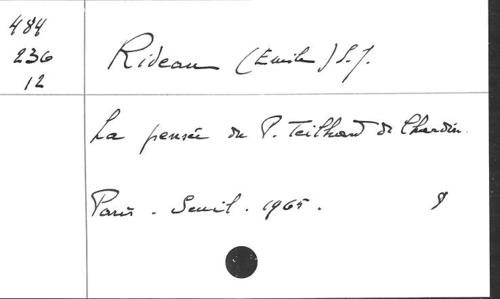 484
236
12
Rideau (Emile) S.J.
La pensée du P. Teilhard de Chardin.
Paris. Seuil. 1965.